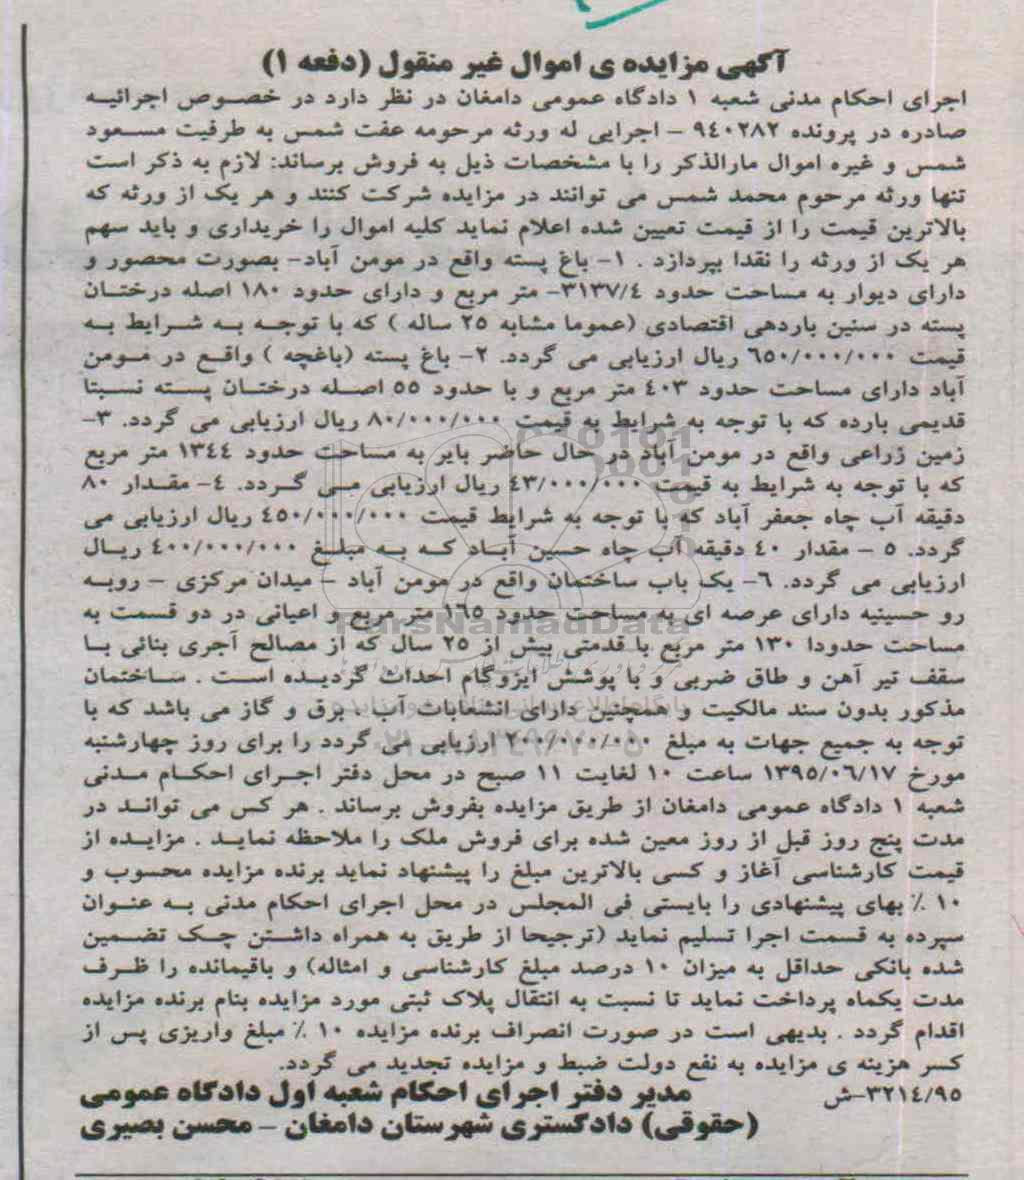 آگهی مزایده ی اموال غیر منقول (دفعه ۱)
اجرای احکام مدنی شعبه ۱ دادگاه عمومی دامغان در نظر دارد در خصوص اجرائیه
صادره در پرونده ۹٤۰۲۸۲ – اجرایی له ورثه مرحومه عفت شمس به طرفیت مسعود
شمس و غیره اموال مارالذکر را با مشخصات ذیل به فروش برساند: لازم به ذکر است
تنها ورثه مرحوم محمد شمس می توانند در مزایده شرکت کنند و هر یک از ورثه که
بالاترین قیمت را از قیمت تعیین شده اعلام نماید کلیه اموال را خریداری و باید سهم
هر یک از ورثه را نقدا بپردازد . ۱- باغ پسته واقع در مومن آباد- بصورت محصور و
دارای دیوار به مساحت حدود ۳۱۳۷/٤- متر مربع و دارای حدود ۱۸۰ اصله درختان
پسته در سنین باردهی اقتصادی (عموما مشابه ۲۵ ساله ) که با توجه به شرایط به
قیمت ٦۵۰/۰۰۰/۰۰۰ ریال ارزیابی می گردد. ۲- باغ پسته (باغچه ) واقع در مومن
آباد دارای مساحت حدود ٤۰۳ متر مربع و با حدود ۵۵ اصله درختان پسته نسبتا
قدیمی بارده که با توجه به شرایط به قیمت ۸۰/۰۰۰/۰۰۰ ریال ارزیابی می گردد. ۳-
زمین زراعی واقع در مومن آباد در حال حاضر بایر به مساحت حدود ۱۳٤٤ متر مربع
که با توجه به شرایط به قیمت ٤۳/۰۰۰/۰۰۰ ریال ارزیابی می گردد. ٤- مقدار ۸۰
دقیقه آب چاه جعفر آباد که با توجه به شرایط قیمت ٤۵۰/۰۰۰/۰۰۰ ریال ارزیابی می
گردد. ۵ – مقدار ٤۰ دقیقه آب چاه حسین آباد که به مبلغ ٤۰۰/۰۰۰/۰۰۰ ریال
ارزیابی می گردد. ٦- یک باب ساختمان واقع در مومن آباد – میدان مرکزی – روبه
رو حسینیه دارای عرصه ای به مساحت حدود ۱٦۵ متر مربع و اعیانی در دو قسمت به
مساحت حدودا ۱۳۰ متر مربع با قدمتی بیش از ۲۵ سال که از مصالح آجری بنائی با
سقف تیر آهن و طاق ضربی و با پوشش ایزوگام احداث گردیده است . ساختمان
مذکور بدون سند مالکیت و همچنین دارای انشعابات آب ، برق و گاز می باشد که با
توجه به جمیع جهات به مبلغ ۲۰۰/۰۰۰/۰۰۰ ارزیابی می گردد را برای روز چهارشنبه
مورخ ۱۳۹۵/۰٦/۱۷ ساعت ۱۰ لغایت ۱۱ صبح در محل دفتر اجرای احکام مدنی
شعبه ۱ دادگاه عمومی دامغان از طریق مزایده بفروش برساند . هر کس می تواند در
مدت پنج روز قبل از روز معین شده برای فروش ملک را ملاحظه نماید . مزایده از
قیمت کارشناسی آغاز و کسی بالاترین مبلغ را پیشنهاد نماید برنده مزایده محسوب و
۱۰ ٪ بهای پیشنهادی را بایستی فی المجلس در محل اجرای احکام مدنی به عنوان
سپرده به قسمت اجرا تسلیم نماید (ترجیحا از طریق به همراه داشتن چک تضمین
شده بانکی حداقل به میزان ۱۰ درصد مبلغ کارشناسی و امثاله) و باقیمانده را ظرف
مدت یکماه پرداخت نماید تا نسبت به انتقال پلاک ثبتی مورد مزایده بنام برنده مزایده
اقدام گردد . بدیهی است در صورت انصراف برنده مزایده ۱۰ ٪ مبلغ واریزی پس از
کسر هزینه ی مزایده به نفع دولت ضبط و مزایده تجدید می گردد.
۳۲۱٤/۹۵-ش
مدیر دفتر اجرای احکام شعبه اول دادگاه عمومی
(حقوقی) دادگستری شهرستان دامغان – محسن بصیری
ParsNamadData